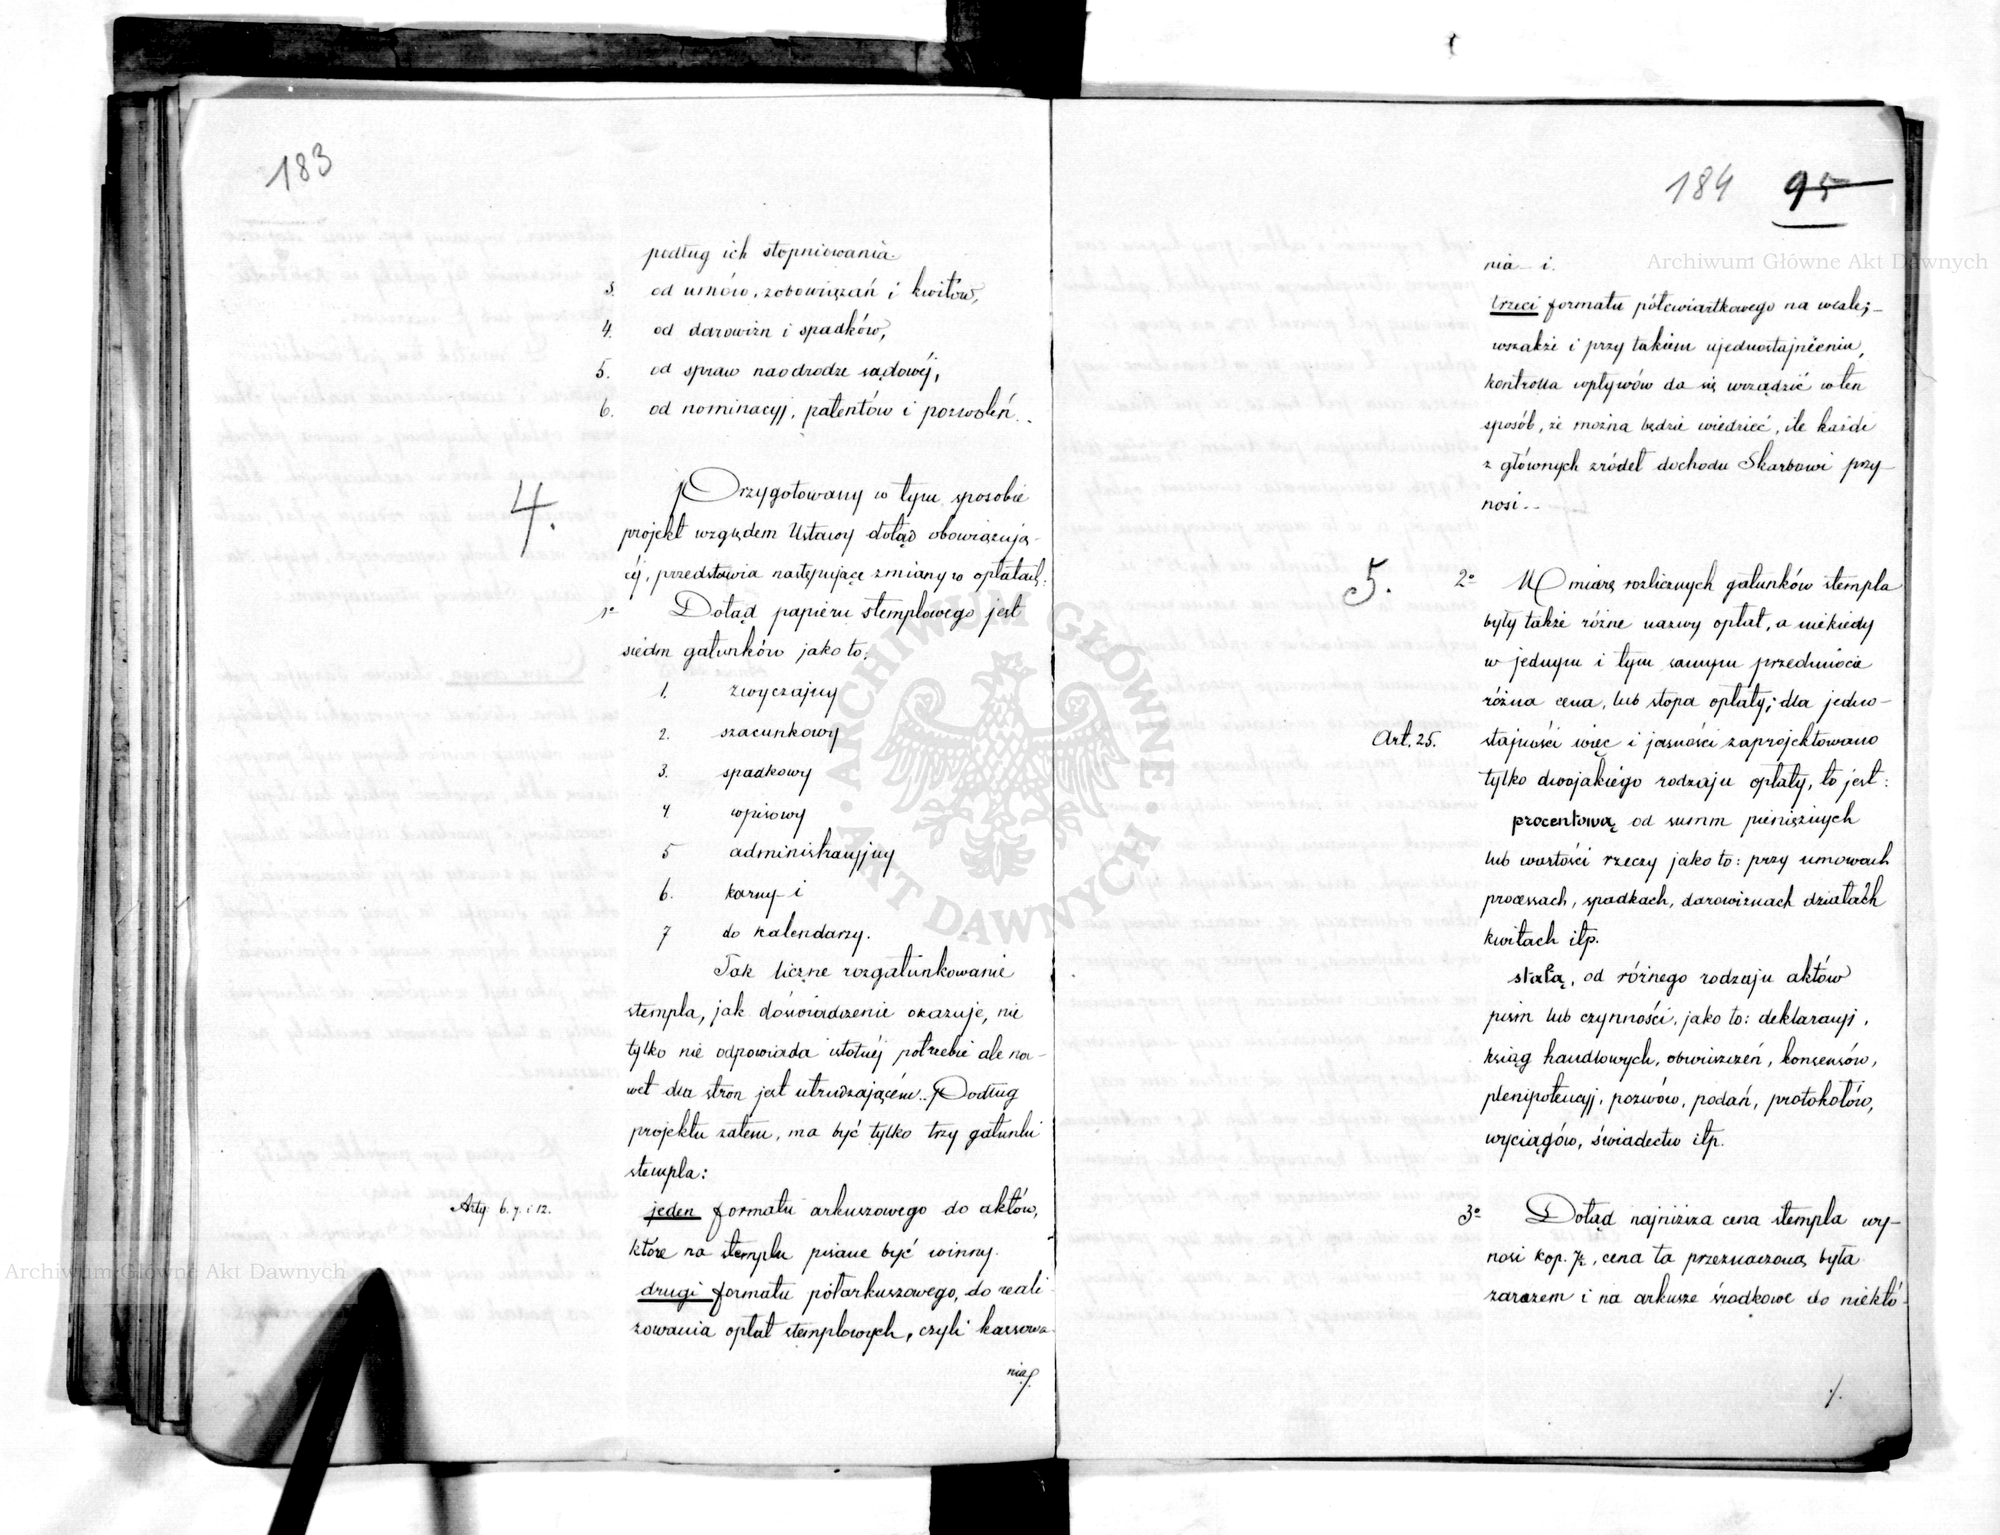 183
podług ich stopniowania.
3. od umów, zobowiązań i kwitów,
4. od darowizn i spadków,
5. od spraw na drodze sądowéj,
6. od nominacyj, patentów i pozwoleń..
4.
Przygotowany w tym sposobie
projekt względem Ustawy dotąd obowiązują-
céj, przedstawia następujące zmiany w opłatach:
1o Dotąd papieru stemplowego jest
siedm gatunków jako to,
1. zwyczajny
2. szacunkowy
3. spadkowy
4 wpisowy
5 administracyjny
6. karny i
7 do kalendarzy.
Tak liczne rozgatunkowanie
stempla, jak doświadczenie okazuje, nie
tylko nie odpowiada istotnéj potrzebie ale na-
wet dla stron jest utrudzającém.. Podług
projektu zatem, ma być tylko trzy gatunki
stempla:
Arty. 6. 7. i 12.
jeden formatu arkuszowego do aktów,
które na stemplu pisane być winny.
drugi formatu półarkuszowego, do reali-
zowania opłat stemplowych, czyli kassowa-
nia/.
184 95
nia i.
trzeci formatu półćwiartkowego na wexle;
wszakże i przy takiem ujednostajnieniu,
kontrolla wpływów da się urządzić w ten
sposób, że można będzie wiedzieć, ile każde
z głównych źródeł dochodu Skarbowi przy-
nosi..
5.
2o W miarę rozlicznych gatunków stempla
były także różne nazwy opłat, a niekiedy
w jednym i tym samym przedmiocie
różna cena, lub stopa opłaty; dla jedno-
Art. 25. stajności więc i jasności zaprojektowano
tylko dwojakiego rodzaju opłaty, to jest:
procentową od summ pieniężnych
lub wartości rzeczy jako to: przy umowach
processach, spadkach, darowiznach działach
kwitach itp.
stałą, od różnego rodzaju aktów
pism lub czynności, jako to: deklaracyj,
ksiąg handlowych, obwieszczeń, konsensów,
plenipotencyj, pozwów, podań, protokołów,
wyciągów, świadectw itp.
3o Dotąd najniższa cena stempla wy-
nosi kop. 7½, cena ta przeznaczoną była
zarazem i na arkusze środkowe do niektó-
./.
Archiwum Główne Akt Dawnych
Archiwum Główne Akt Dawnych
ARCHIWUM GŁÓWNE · AKT DAWNYCH ·